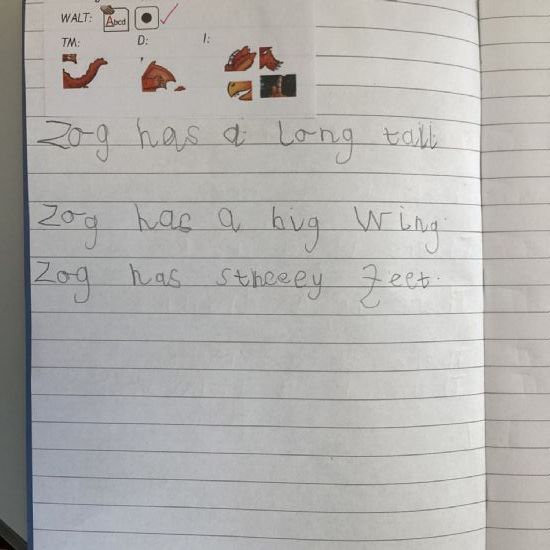 WALT: Abcd
TM: D: I:
Zog has a long tail
Zog has a big Wing.
Zog has feet.